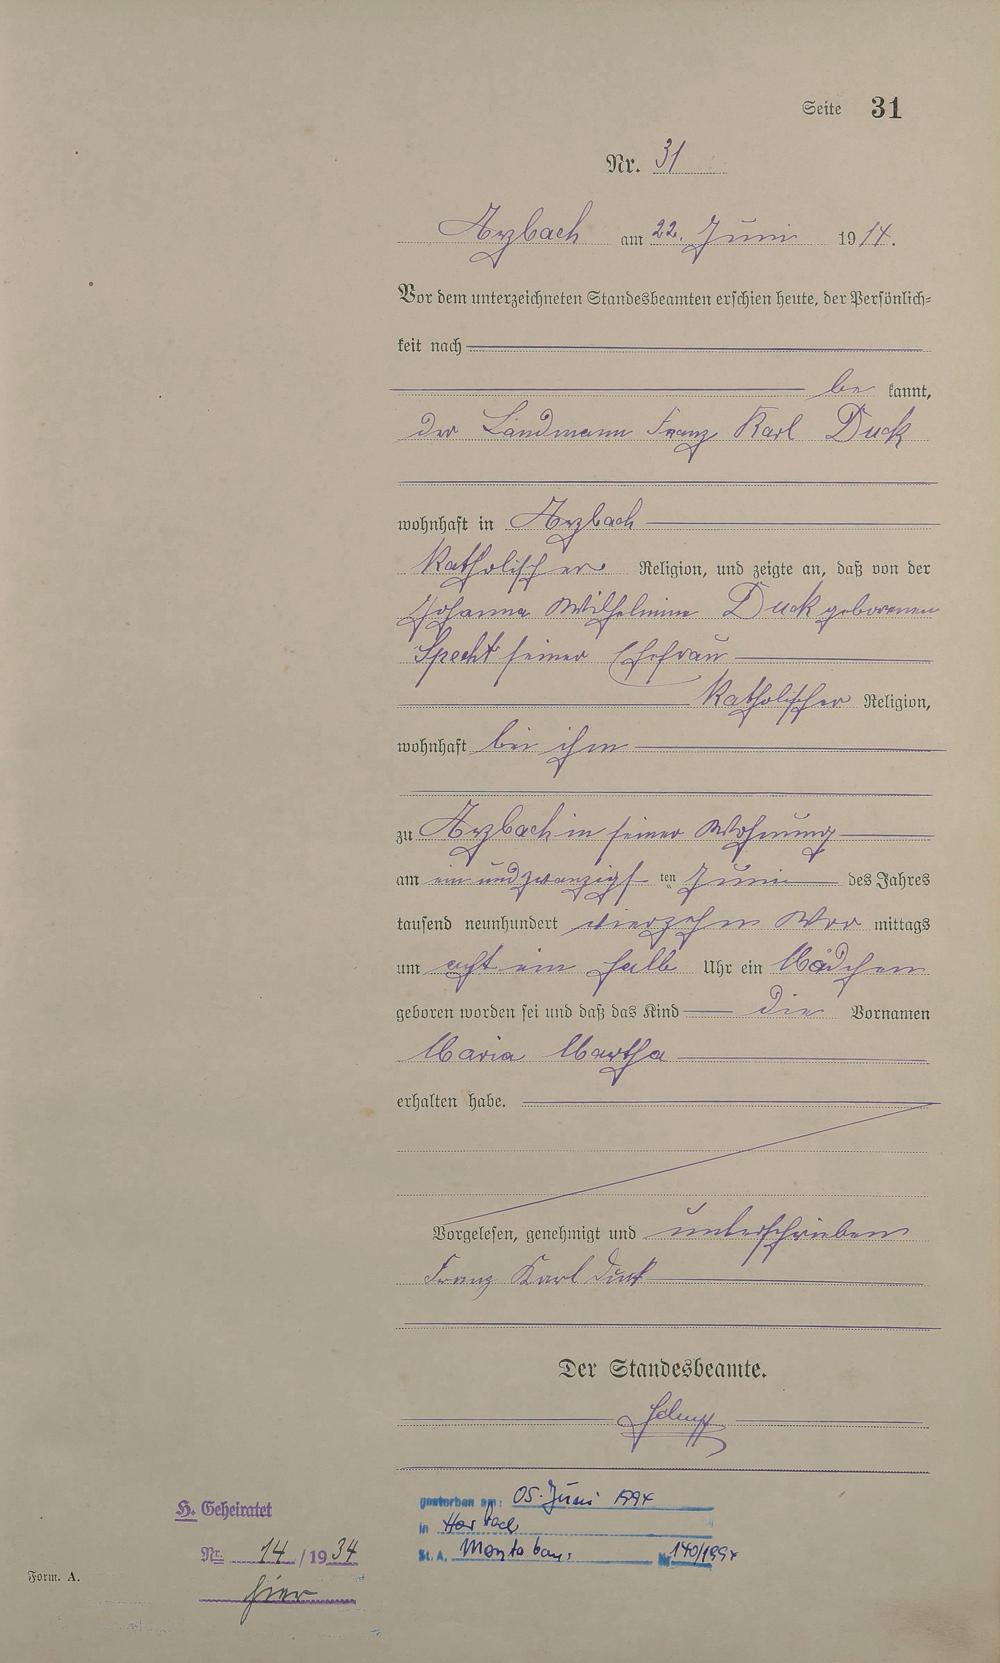 Seite 31
Nr. 31
Arzbach am 22. Juni 1914.
Vor dem unterzeichneten Standesbeamten erschien heute, der Persönlich=
keit nach
be kannt,
der Landmann Franz Karl Duck
wohnhaft in Arzbach
katholischer Religion, und zeigte an, daß von der
Johanna Wilhelmine Duck geborenen
Specht seiner Ehefrau
katholischer Religion,
wohnhaft bei ihm
zu Arzbach in seiner Wohnung
am ein und zwanzigsten Juni des Jahres
tausend neunhundert vierzehn Vor mittags
um acht ein halb Uhr ein Mädchen
geboren worden sei und daß das Kind die Vornamen
Maria Martha
erhalten habe.
Vorgelesen, genehmigt und unterschrieben
Franz Karl Duck
Der Standesbeamte.
H. Geheiratet
Nr. 14 / 1934
hier
gestorben am: 05. Juni 1994
in Horbach
St. A. Montabaur Nr. 140/1994
Form. A.